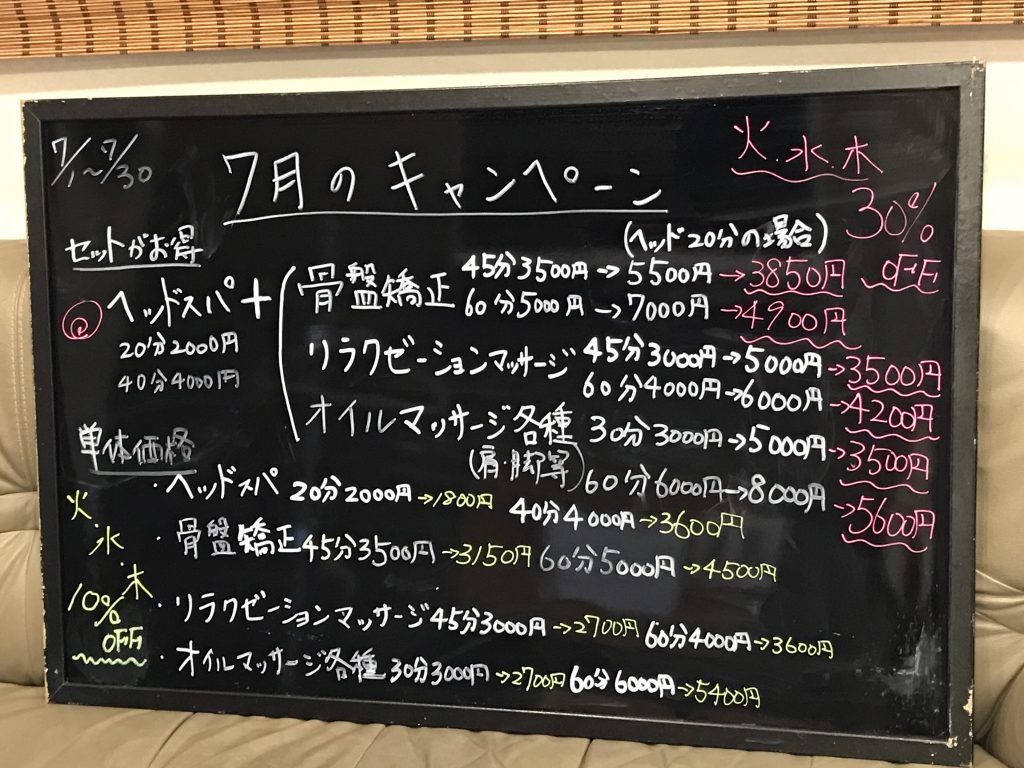 7/1〜7/30
7月のキャンペーン
火.水.木
30%
OFF
セットがお得
(ヘッド20分の場合)
ヘッドスパ+
20分2000円
40分4000円
骨盤矯正 45分3500円→5500円→3850円
60分5000円→7000円→4900円
リラクゼーションマッサージ 45分3000円→5000円→3500円
60分4000円→6000円→4200円
オイルマッサージ各種 30分3000円→5000円→3500円
(肩・脚等) 60分6000円→8000円→5600円
単体価格
火.水.木
10%
OFF
・ヘッドスパ 20分2000円→1800円 40分4000円→3600円
・骨盤矯正 45分3500円→3150円 60分5000円→4500円
・リラクゼーションマッサージ 45分3000円→2700円 60分4000円→3600円
・オイルマッサージ各種 30分3000円→2700円 60分6000円→5400円